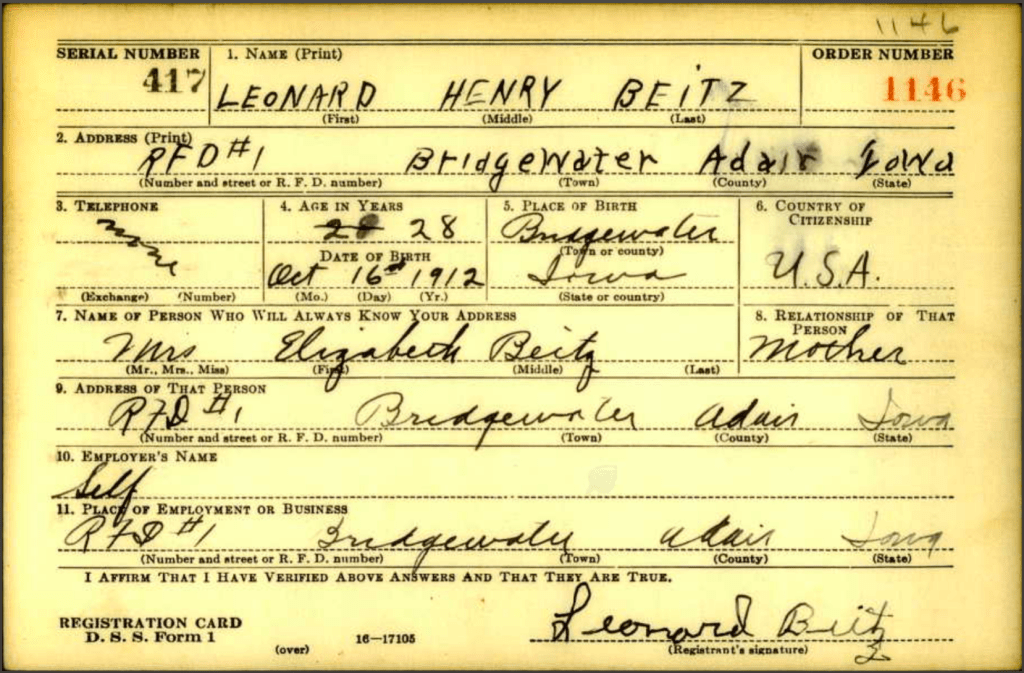 1146
SERIAL NUMBER 1. NAME (Print) ORDER NUMBER
417 LEONARD HENRY BEITZ 1146
(First) (Middle) (Last)
2. ADDRESS (Print)
RFD #1 Bridgewater Adair Iowa
(Number and street or R. F. D. number) (Town) (County) (State)
3. TELEPHONE 4. AGE IN YEARS 5. PLACE OF BIRTH 6. COUNTRY OF CITIZENSHIP
none 28 Bridgewater
DATE OF BIRTH (Town or county)
Oct 16 1912 Iowa U.S.A.
(Exchange) (Number) (Mo.) (Day) (Yr.) (State or country)
7. NAME OF PERSON WHO WILL ALWAYS KNOW YOUR ADDRESS 8. RELATIONSHIP OF THAT PERSON
Mrs Elizabeth Beitz Mother
(Mr., Mrs., Miss) (First) (Middle) (Last)
9. ADDRESS OF THAT PERSON
RFD #1 Bridgewater Adair Iowa
(Number and street or R. F. D. number) (Town) (County) (State)
10. EMPLOYER'S NAME
Self
11. PLACE OF EMPLOYMENT OR BUSINESS
RFD #1 Bridgewater Adair Iowa
(Number and street or R. F. D. number) (Town) (County) (State)
I AFFIRM THAT I HAVE VERIFIED ABOVE ANSWERS AND THAT THEY ARE TRUE.
REGISTRATION CARD
D. S. S. Form 1 16—17105 Leonard Beitz
(over) (Registrant's signature)